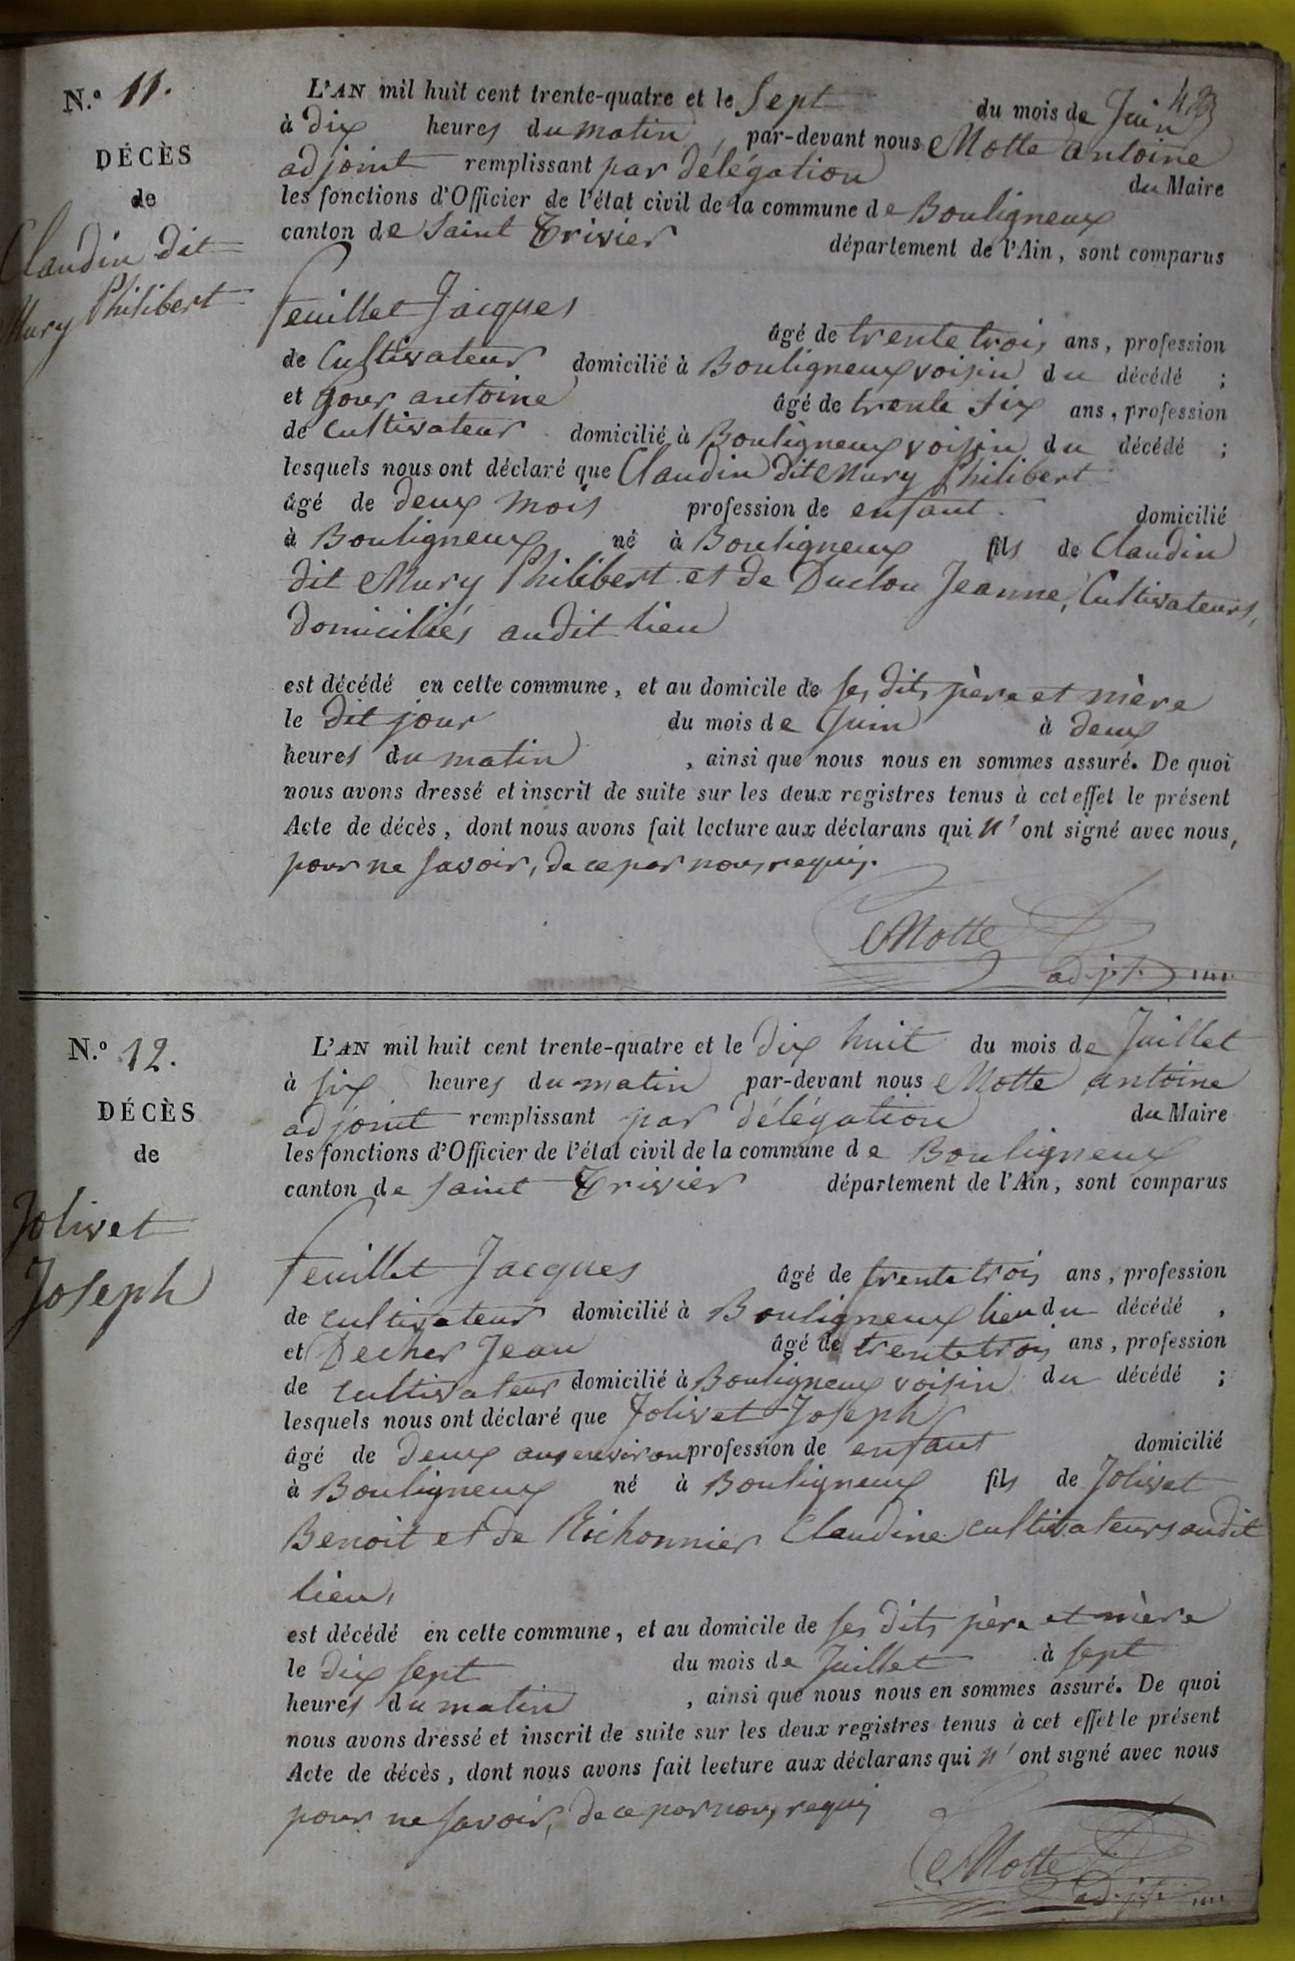 N.° 11.
DÉCÈS
de
Claudin dit
Mury Philibert
L'AN mil huit cent trente-quatre et le Sept du mois de Juin
à dix heures du matin, par-devant nous Motte antoine
adjoint remplissant par délégation du Maire
les fonctions d'Officier de l'état civil de la commune de Bouligneux
canton de Saint Trivier département de l'Ain, sont comparus
feuillet Jacques âgé de trente trois ans, profession
de Cultivateur domicilié à Bouligneux voisin du décédé ;
et antoine âgé de trente six ans, profession
de cultivateur domicilié à Bouligneux voisin du décédé ;
lesquels nous ont déclaré que Claudin dit Mury Philibert
âgé de deux mois profession de enfant. domicilié
à Bouligneux né à Bouligneux fils de Claudin
dit Mury Philibert et de Duclou Jeanne, Cultivateurs,
domiciliés audit lieu
est décédé en cette commune, et au domicile de ses dits père et mère
le dit jour du mois de Juin à deux
heures du matin, ainsi que nous nous en sommes assuré. De quoi
nous avons dressé et inscrit de suite sur les deux registres tenus à cet effet le présent
Acte de décès, dont nous avons fait lecture aux déclarans qui n'ont signé avec nous,
pour ne savoir, de ce par nous requis.
Motte
adjt.
N.° 12.
DÉCÈS
de
Jolivet
Joseph
L'AN mil huit cent trente-quatre et le dix huit du mois de Juillet
à six heures du matin par-devant nous Motte antoine
adjoint remplissant par délégation du Maire
les fonctions d'Officier de l'état civil de la commune de Bouligneux
canton de Saint Trivier département de l'Ain, sont comparus
feuillet Jacques âgé de trente trois ans, profession
de cultivateur domicilié à Bouligneux lieu du décédé,
et Decher Jean âgé de trente trois ans, profession
de cultivateur domicilié à Bouligneux voisin du décédé ;
lesquels nous ont déclaré que Jolivet Joseph
âgé de deux ans environ profession de enfant domicilié
à Bouligneux né à Bouligneux fils de Jolivet
Benoit et de Richonnier Claudine cultivateurs audit
lieu,
est décédé en cette commune, et au domicile de ses dits père et mère
le dix sept du mois de Juillet à sept
heures du matin, ainsi que nous nous en sommes assuré. De quoi
nous avons dressé et inscrit de suite sur les deux registres tenus à cet effet le présent
Acte de décès, dont nous avons fait lecture aux déclarans qui n'ont signé avec nous
pour ne savoir, de ce par nous requis
Motte
adjt.